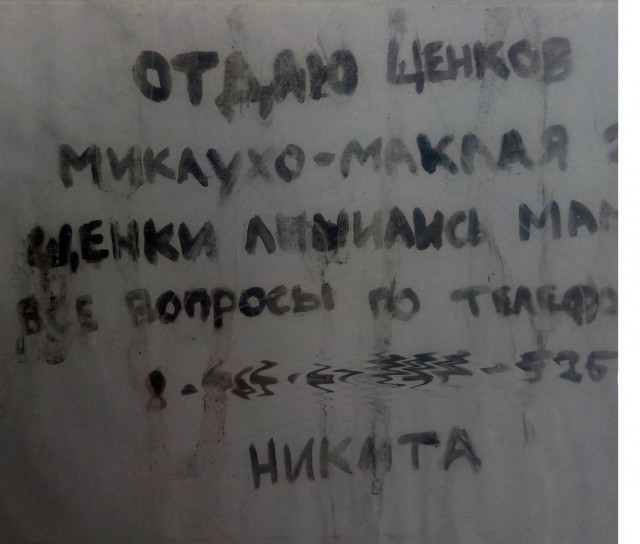 ОТДАЮ ЩЕНКОВ
МИКЛУХО-МАКЛАЯ
ЩЕНКИ ЛИШИЛИСЬ МАМ
ВСЕ ВОПРОСЫ ПО ТЕЛЕФО
НИКИТА